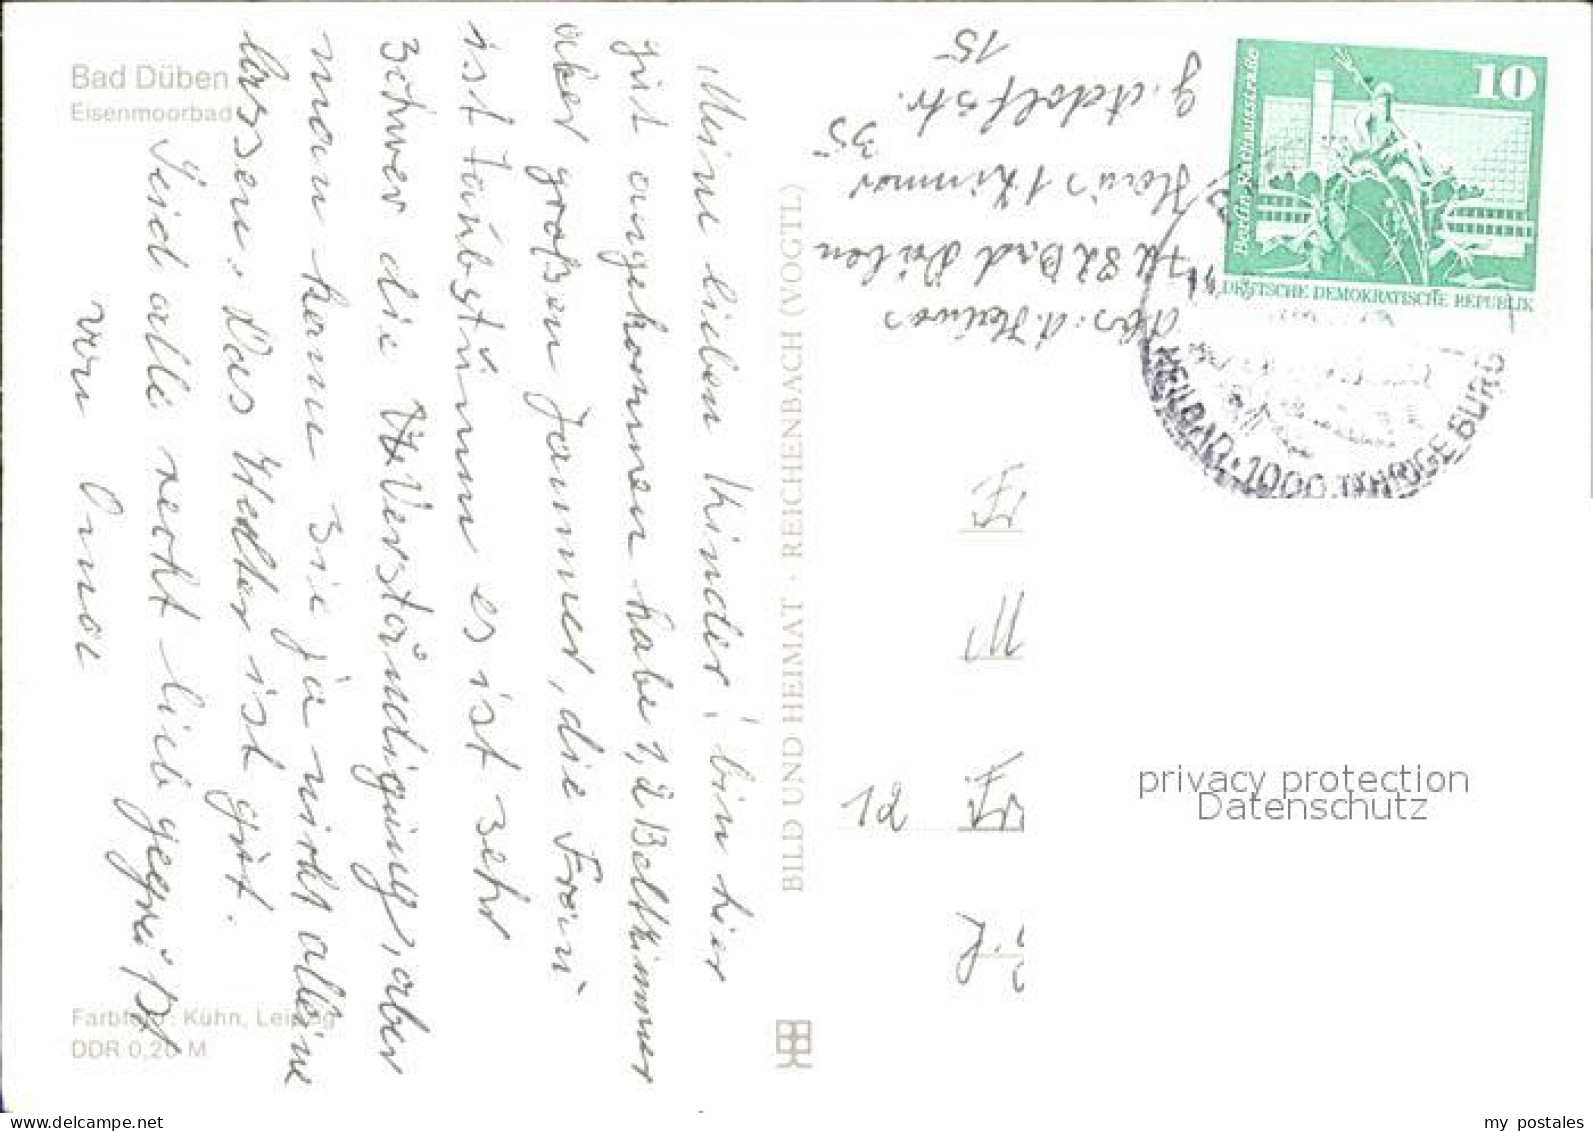 Bad Düben
Eisenmoorbad
Meine lieben Kinder! bin hier
gut angekommen habe 1, 2 Bettzimmer
aber großen Jammer, die Frau
ist taubstumm es ist sehr
schwer die Verständigung, aber
man kann sie ja nicht alleine
lassen. Das Wetter ist gut.
Seid alle recht lieb gegrüßt
von Oma
Farbfoto: Kühn, Leipzig
DDR 0,20 M
BILD UND HEIMAT · REICHENBACH (VOGTL)
Abs.
7282 Bad Düben
Haus 1 Zimmer
35
G. Adolfstr.
15
10
Berlin, Rathausstraße
DEUTSCHE DEMOKRATISCHE REPUBLIK
HEILBAD · 1000 JÄHRIGE BURG
privacy protection
Datenschutz
my postales
delcampe.net